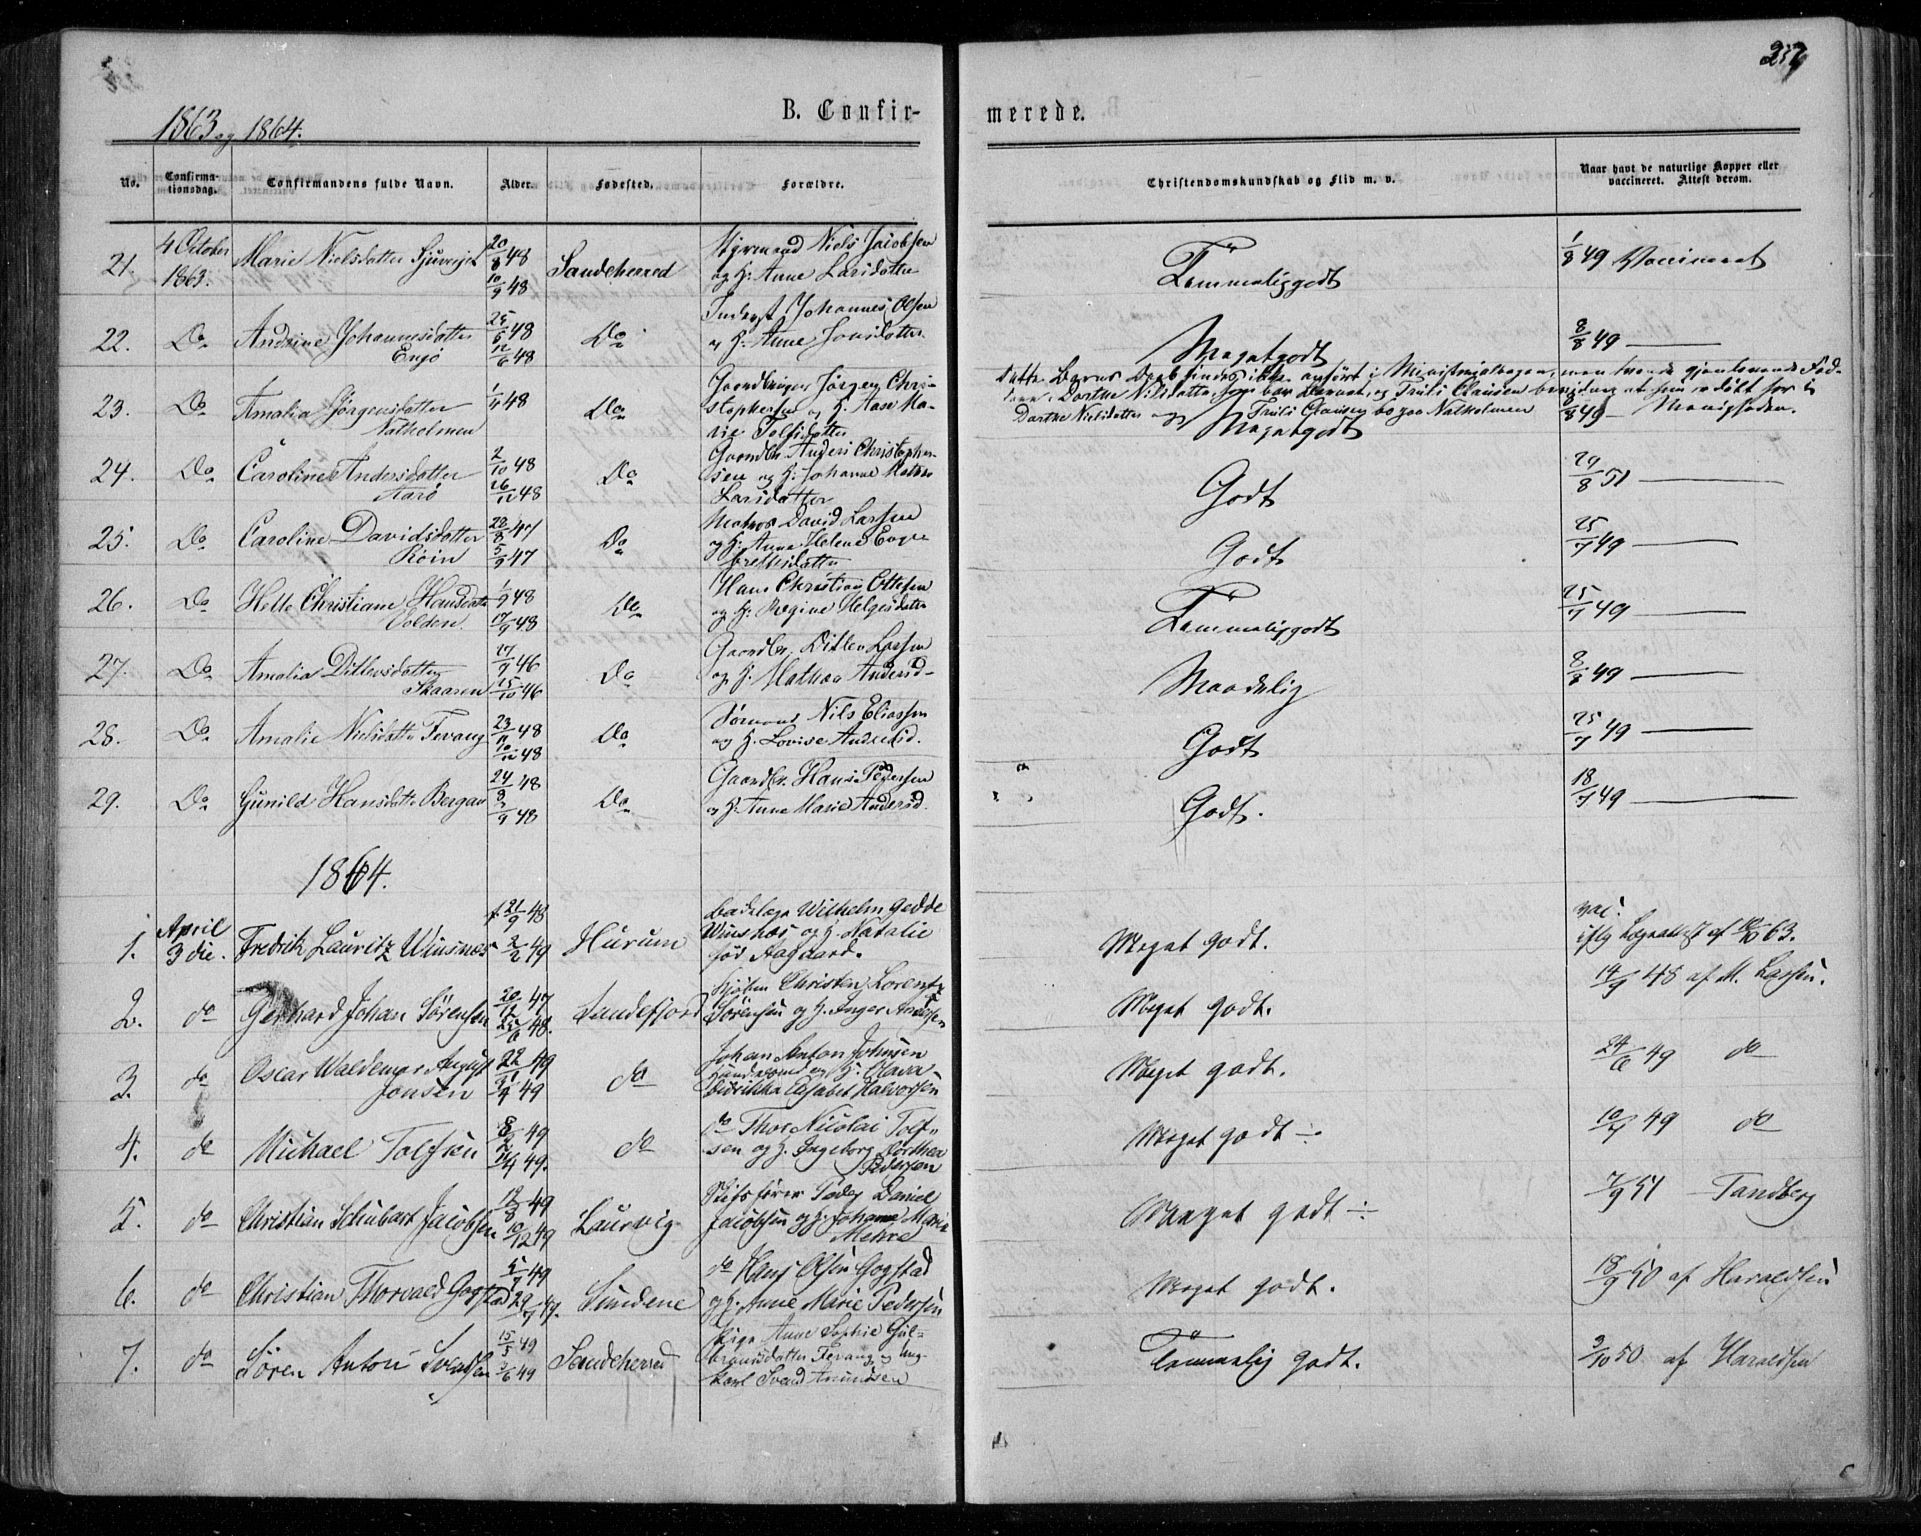 257
1863 og 1864.
B. Confir-
merede.
No.
Confirma-
tionsdag.
Confirmandens fulde Navn.
Alder.
Fødested.
Forældre.
Christendomskundskab og Flid m. v.
Naar havt de naturlige Kopper eller
vaccineret. Attest derom.
21.
4 October
1863.
Marie Nielsdatter
20/8 48
10/9 48
Sandeherred
Styrmand Niels Jacobsen
og H. Anne Larsdatter
Temmeliggodt
1/8 49 Vaccineret
22.
Do
Andrine Johannesdatter
Engø
25/5 48
12/6 48
Do
Inderst Johannes Olsen
og H. Anne
Megetgodt
8/8 49
23.
Do
Amalia Jørgensdatter
Natholmen
48
Do
Gaardbruger Jørgen Chri-
stophersen og H. Aase Ma-
rie Tolfsdatter
Dette Barns Daab findes ikke anført i Ministerialbogen, men hvende gjenlevende Fad-
dere, Dorthe Nilsdatter, som bar Barnet, og Truls Clausen bevidne at hun er døbt her i
Dorthe Nielsdatter og Truls Clausen bo paa Natholmen
Menigheden.
Megetgodt
8/8 49
24.
Do
Caroline Andersdatter
Aarø
2/10 48
26/12 48
Do
Gaardbr. Anders Christopher-
sen og H. Johanne Mathea
Larsdatter
Godt
29/8 51
25.
Do
Caroline Davidsdatter
Røin
28/8 47
5/9 47
Do
Matros David Larssen
og H. Anne Helene Enge-
brettsdatter
Godt
25/7 49
26.
Do
Helle Christiane Hansdatter
Volden
48
17/9 48
Do
Hans Christian Ottesen
og H. Regine Helgesdatter
Temmeliggodt
25/7 49
27.
Do
Amalia Ditlevsdatter
Skaaren
17/9 46
15/10 46
Do
Gaardbr. Ditlev Larssen
og H. Mathea Andersd-
Maadelig
8/8 49
28.
Do
Amalie Nielsdatter Fevang
23/11 48
48
Do
Sømand Nils Eliassen
og H. Lovise Andersd.
Godt
25/7 49
29.
Do
Gunild Hansdatter Bergan
24/8 48
48
Do
Gaardbr. Hans Pedersen
og H. Anne Marie Andersd.
Godt.
18/7 49
1864.
1.
April
3 die.
Fredrik Lauritz Winsnes
f. 21/9 48
2/2 49
Hurum
Badelæge Wilhelm Gedde
Winsnes og H. Natalie
før Aagaard.
Meget godt.
vac.
iflg Lægeattest af 63.
2.
do
Gerhard Johan Sørensen
20/12 47
25/6 48.
Sandefjord
Kjøbm Christen Lorentz
Sørensen og H. Inger Andersen
Meget godt.
14/9 48 af M. Lassen.
3.
do
Oscar Waldemar August
Jonsen
22/1 49
4 49
do
Johan Anton Johnsen
Handelsmand og H. Olava
Didrikka Elisabet Halvorsen
Meget godt.
24/6 49 do
4.
do
Michael Tolfsen
8/2 49
4 49.
do
do Thor Nicolai Tolf-
sen og H. Ingeborg Dorthea
Pedersen
Meget godt ÷
49 do
5.
do
Christian Schubart Jacobsen
49
10/12 49
Laurvig
Skibsfører Peder Daniel
Jacobsen og H. Johanne Marie
Mehre
Meeget godt ÷
7/9 51 Tandberg
6.
do
Christian Thorvald Gogstad
49
29 49.
Sundene
do Hans Olsen Gogstad
og H. Anne Marie Pedersen
Meget godt.
18/9 50 af Haraldsen
7.
do
Søren Anton Svendsen
15/5 49
6 49
Sandeherred
Pige Anne Sophie Gul-
brandsdatter Fevang og Ung-
karl Svend Amundsen
Temmelig godt.
10 50 af Haraldsen